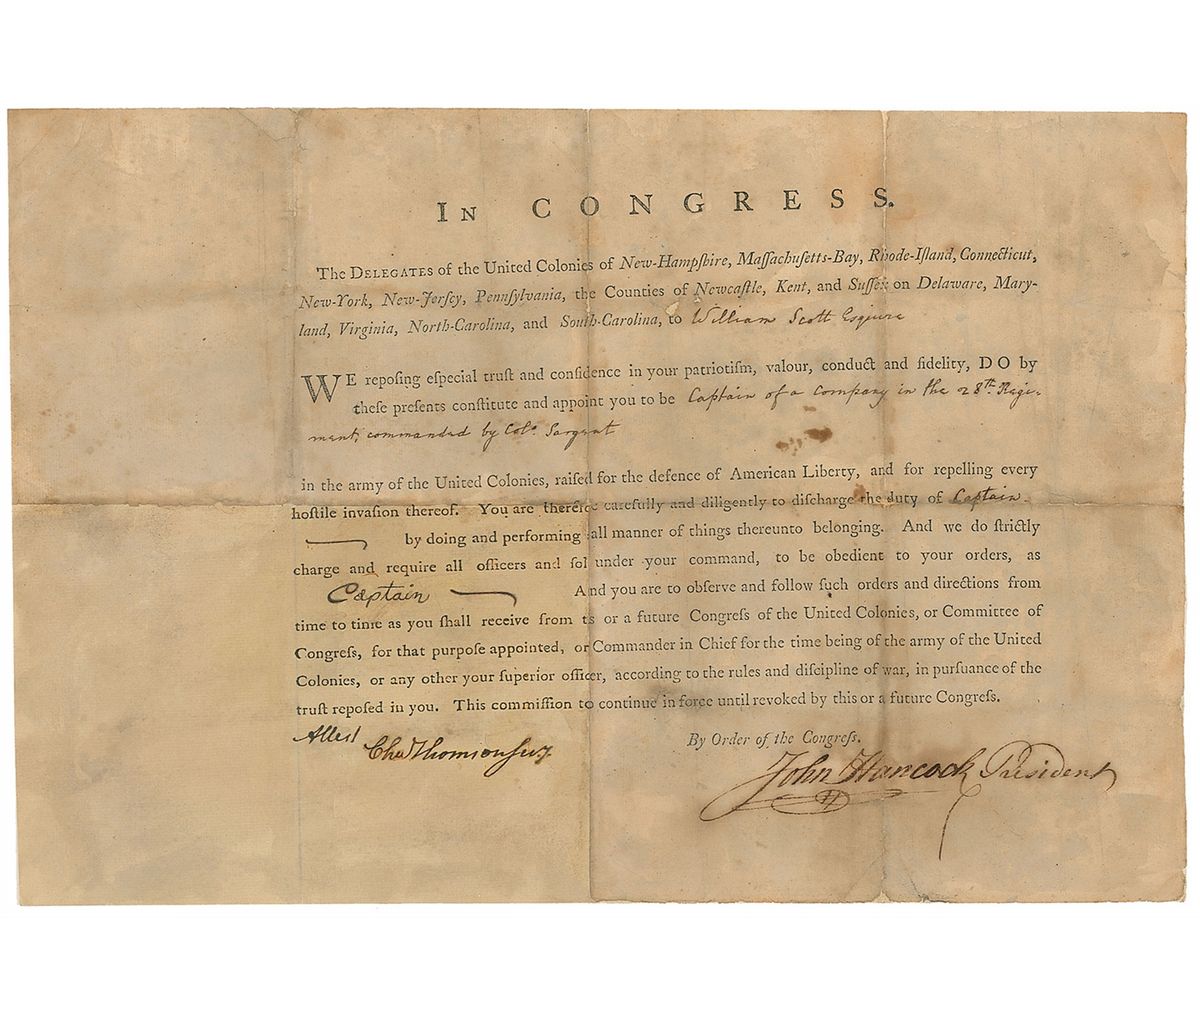 IN CONGRESS.
The DELEGATES of the United Colonies of New-Hampſhire, Maſſachuſetts-Bay, Rhode-Iſland, Connecticut,
New-York, New-Jerſey, Pennſylvania, the Counties of Newcaſtle, Kent, and Suſſex on Delaware, Mary-
land, Virginia, North-Carolina, and South-Carolina, to William Scott Esquire
WE repoſing eſpecial truſt and confidence in your patriotiſm, valour, conduct and fidelity, DO by
theſe preſents conſtitute and appoint you to be Captain of a Company in the 28th. Regi-
ment, commanded by Colo. Sargent
in the army of the United Colonies, raiſed for the defence of American Liberty, and for repelling every
hoſtile invaſion thereof. You are therefore carefully and diligently to diſcharge the duty of Captain
by doing and performing all manner of things thereunto belonging. And we do ſtrictly
charge and require all officers and ſol under your command, to be obedient to your orders, as
Captain And you are to obſerve and follow ſuch orders and directions from
time to time as you ſhall receive from ts or a future Congreſs of the United Colonies, or Committee of
Congreſs, for that purpoſe appointed, or Commander in Chief for the time being of the army of the United
Colonies, or any other your ſuperior officer, according to the rules and diſcipline of war, in purſuance of the
truſt repoſed in you. This commiſſion to continue in force until revoked by this or a future Congreſs.
By Order of the Congreſs.
Attest Chas Thomson Secy
John Hancock President